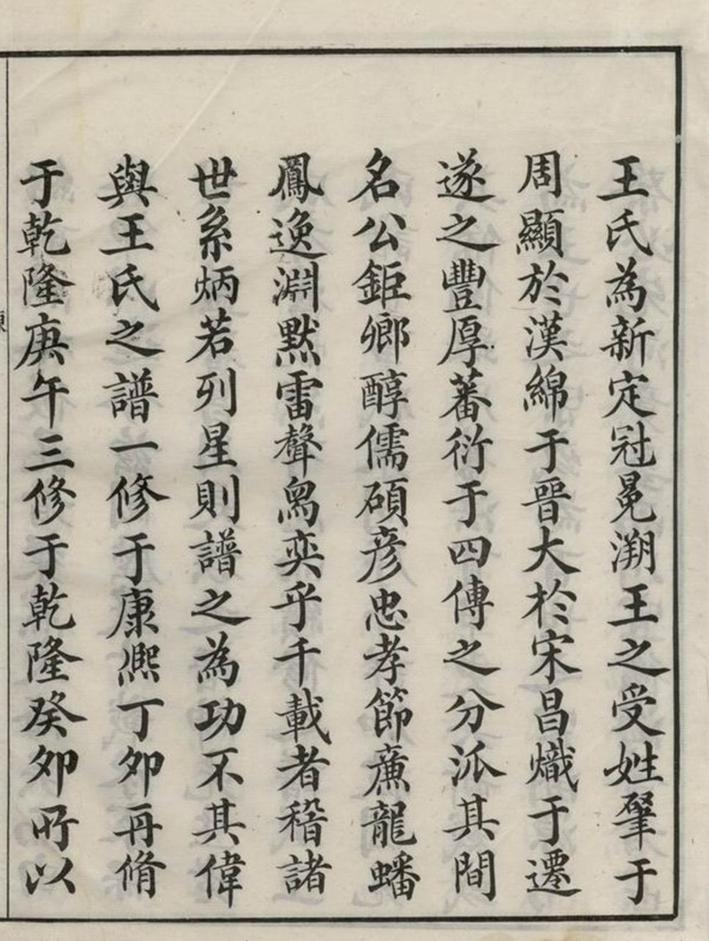 王氏為新定冠冕溯王之受姓肇于
周顯於漢綿于晉大於宋昌熾于遷
遂之豐厚蕃衍于四傳之分派其間
名公鉅鄉醇儒碩彦忠孝節廉龍蟠
鳳逸淵默雷聲舄奕乎千載者稽諸
世系炳若列星則譜之為功不其偉
與王氏之譜一修于康熙丁卯再脩
于乾隆庚午三修于乾隆癸卯所以